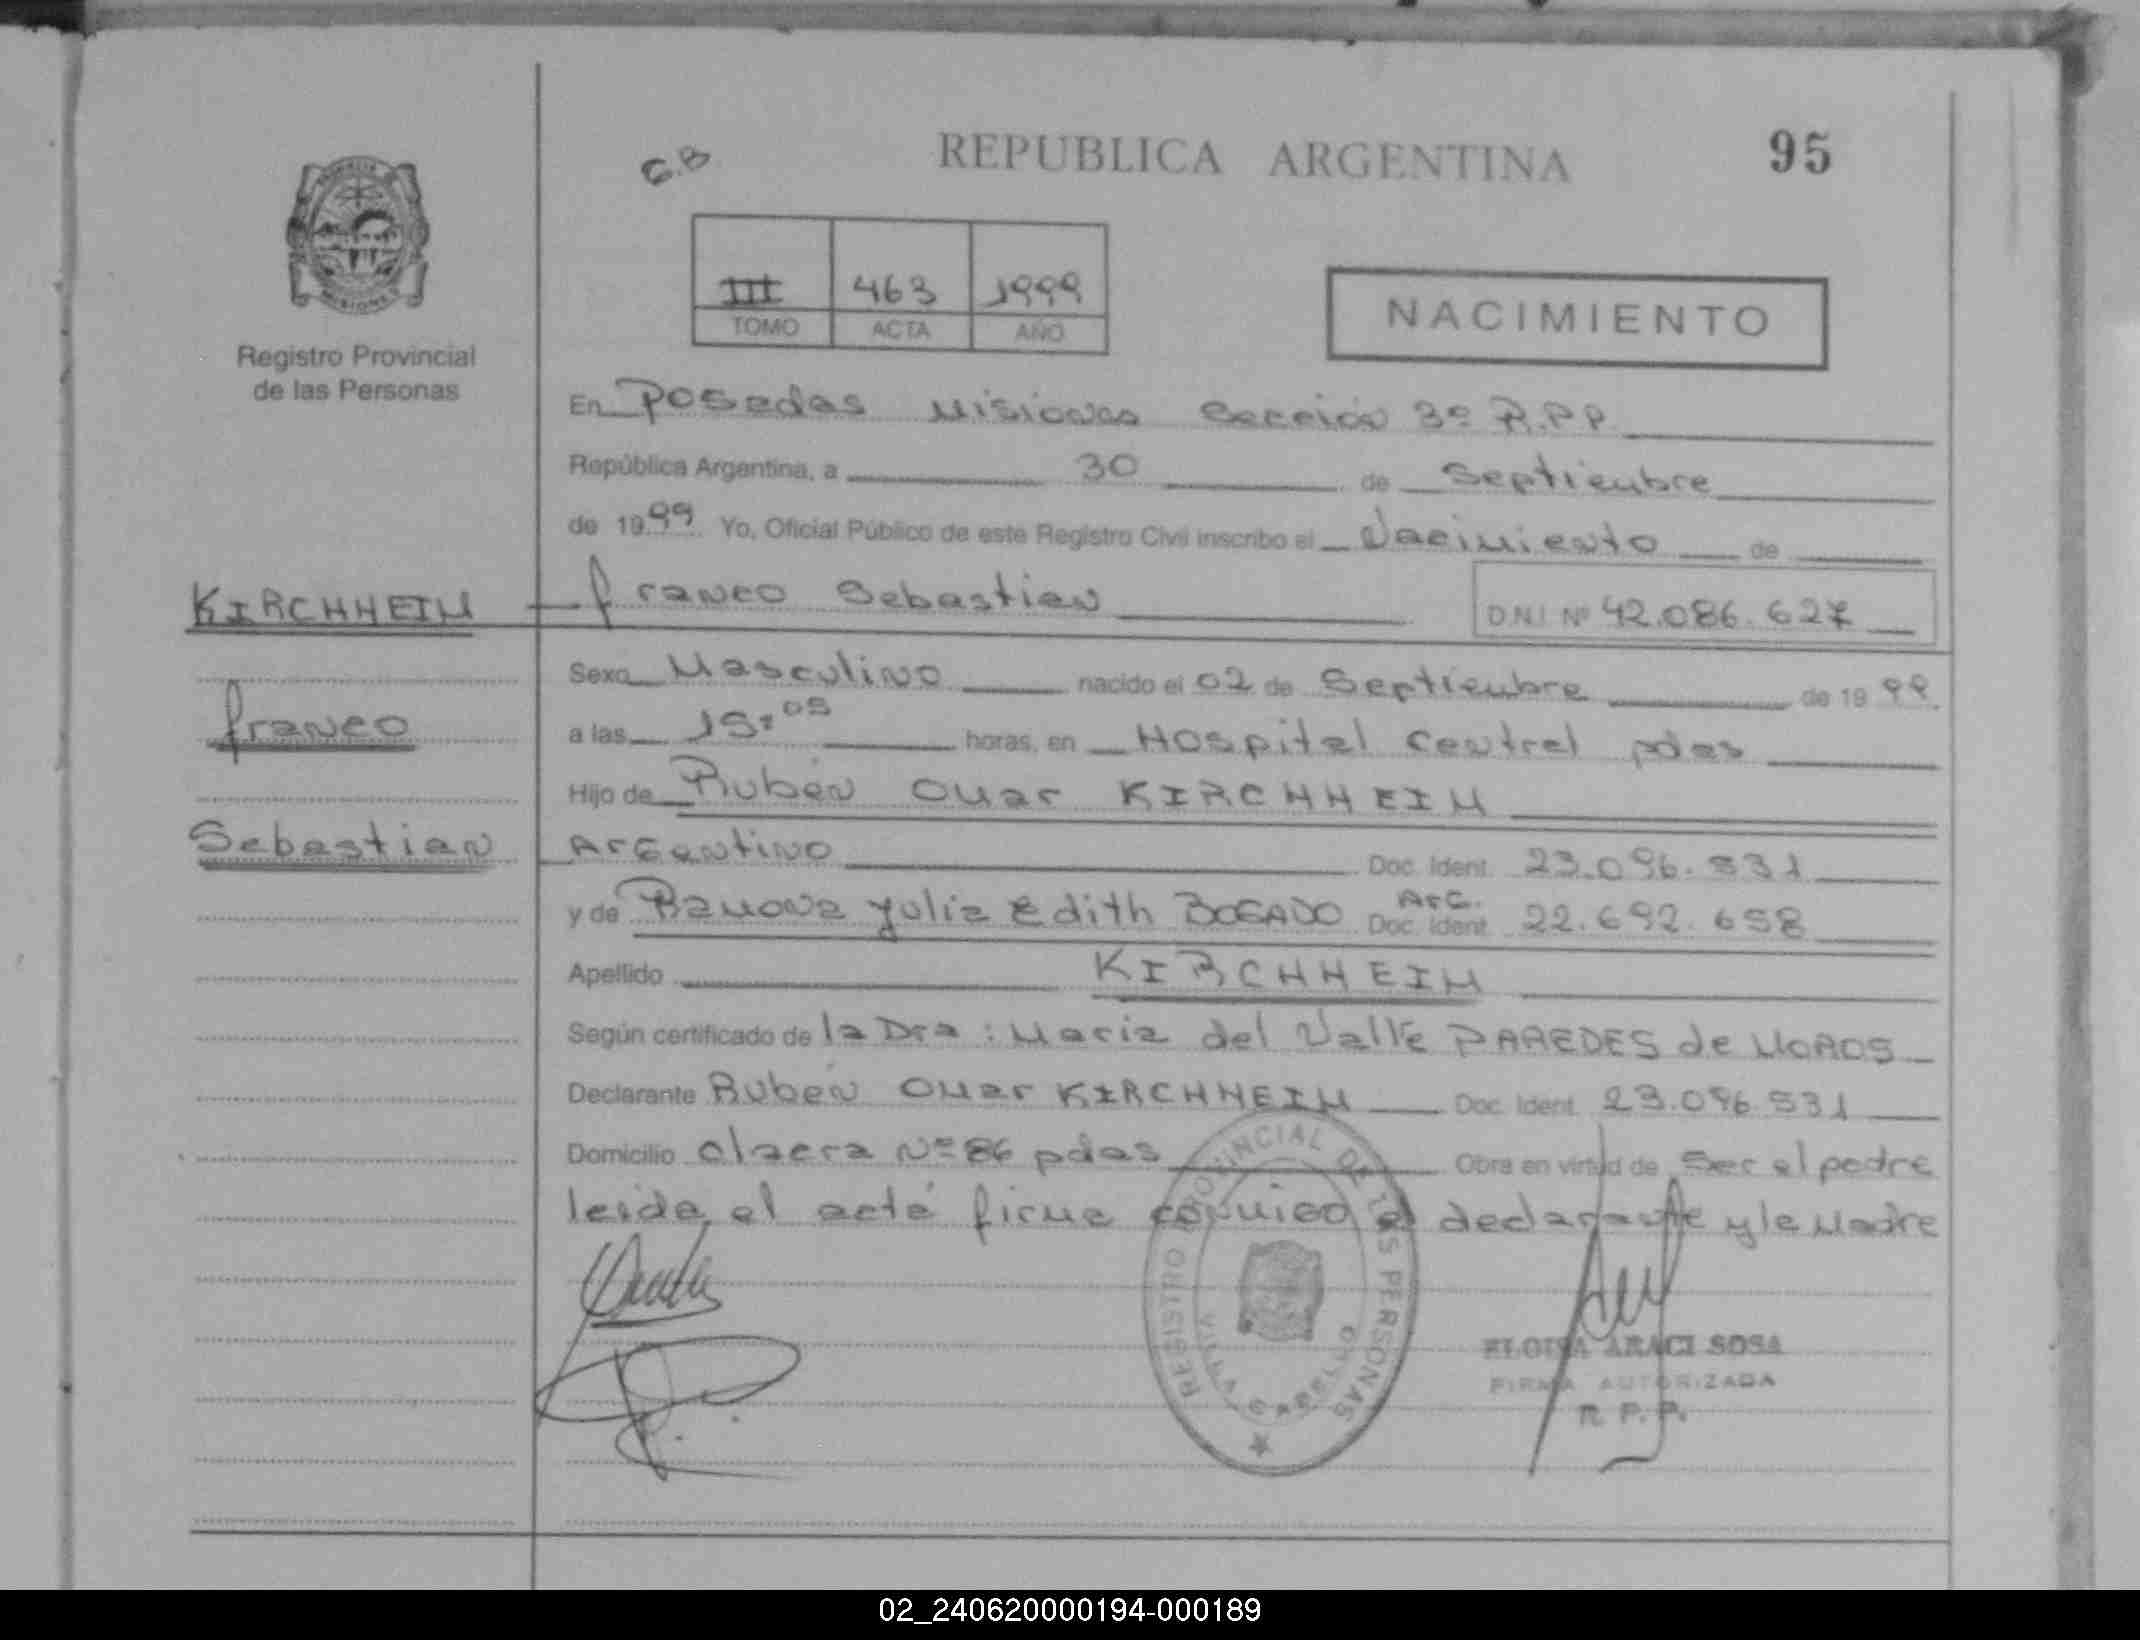 G.B
REPUBLICA ARGENTINA
95
PROVINCIA
MISIONES
Registro Provincial
de las Personas
III 463 1999
TOMO ACTA AÑO
NACIMIENTO
En Posadas Misiones Sección 3º R.P.P.
República Argentina, a 30 de Septiembre
de 1999 Yo, Oficial Público de este Registro Civil inscribo el Nacimiento de
KIRCHHEIM
franco Sebastian
D.N.I. Nº 42.086.627
Sexo Masculino nacido el 02 de Septiembre de 1999
franco
a las 15:05 horas, en Hospital Central pdas
Hijo de Rubén Omar KIRCHHEIM
Sebastian
Argentino Doc. Ident. 23.096.531
y de Ramona Julia Edith BOGADO Arg. Doc. Ident. 22.692.658
Apellido KIRCHHEIM
Según certificado de la Dra: Maria del Valle PAREDES de MOROS
Declarante Rubén Omar KIRCHHEIM Doc. Ident. 23.096.531
Domicilio Olaera Nº 86 pdas Obra en virtud de Ser el padre
leida el acta firma conmigo el declarante y la Madre
REGISTRO PROVINCIAL DE LAS PERSONAS
ELOISA ARACI SOSA
FIRMA AUTORIZADA
R. P. P.
02_240620000194-000189